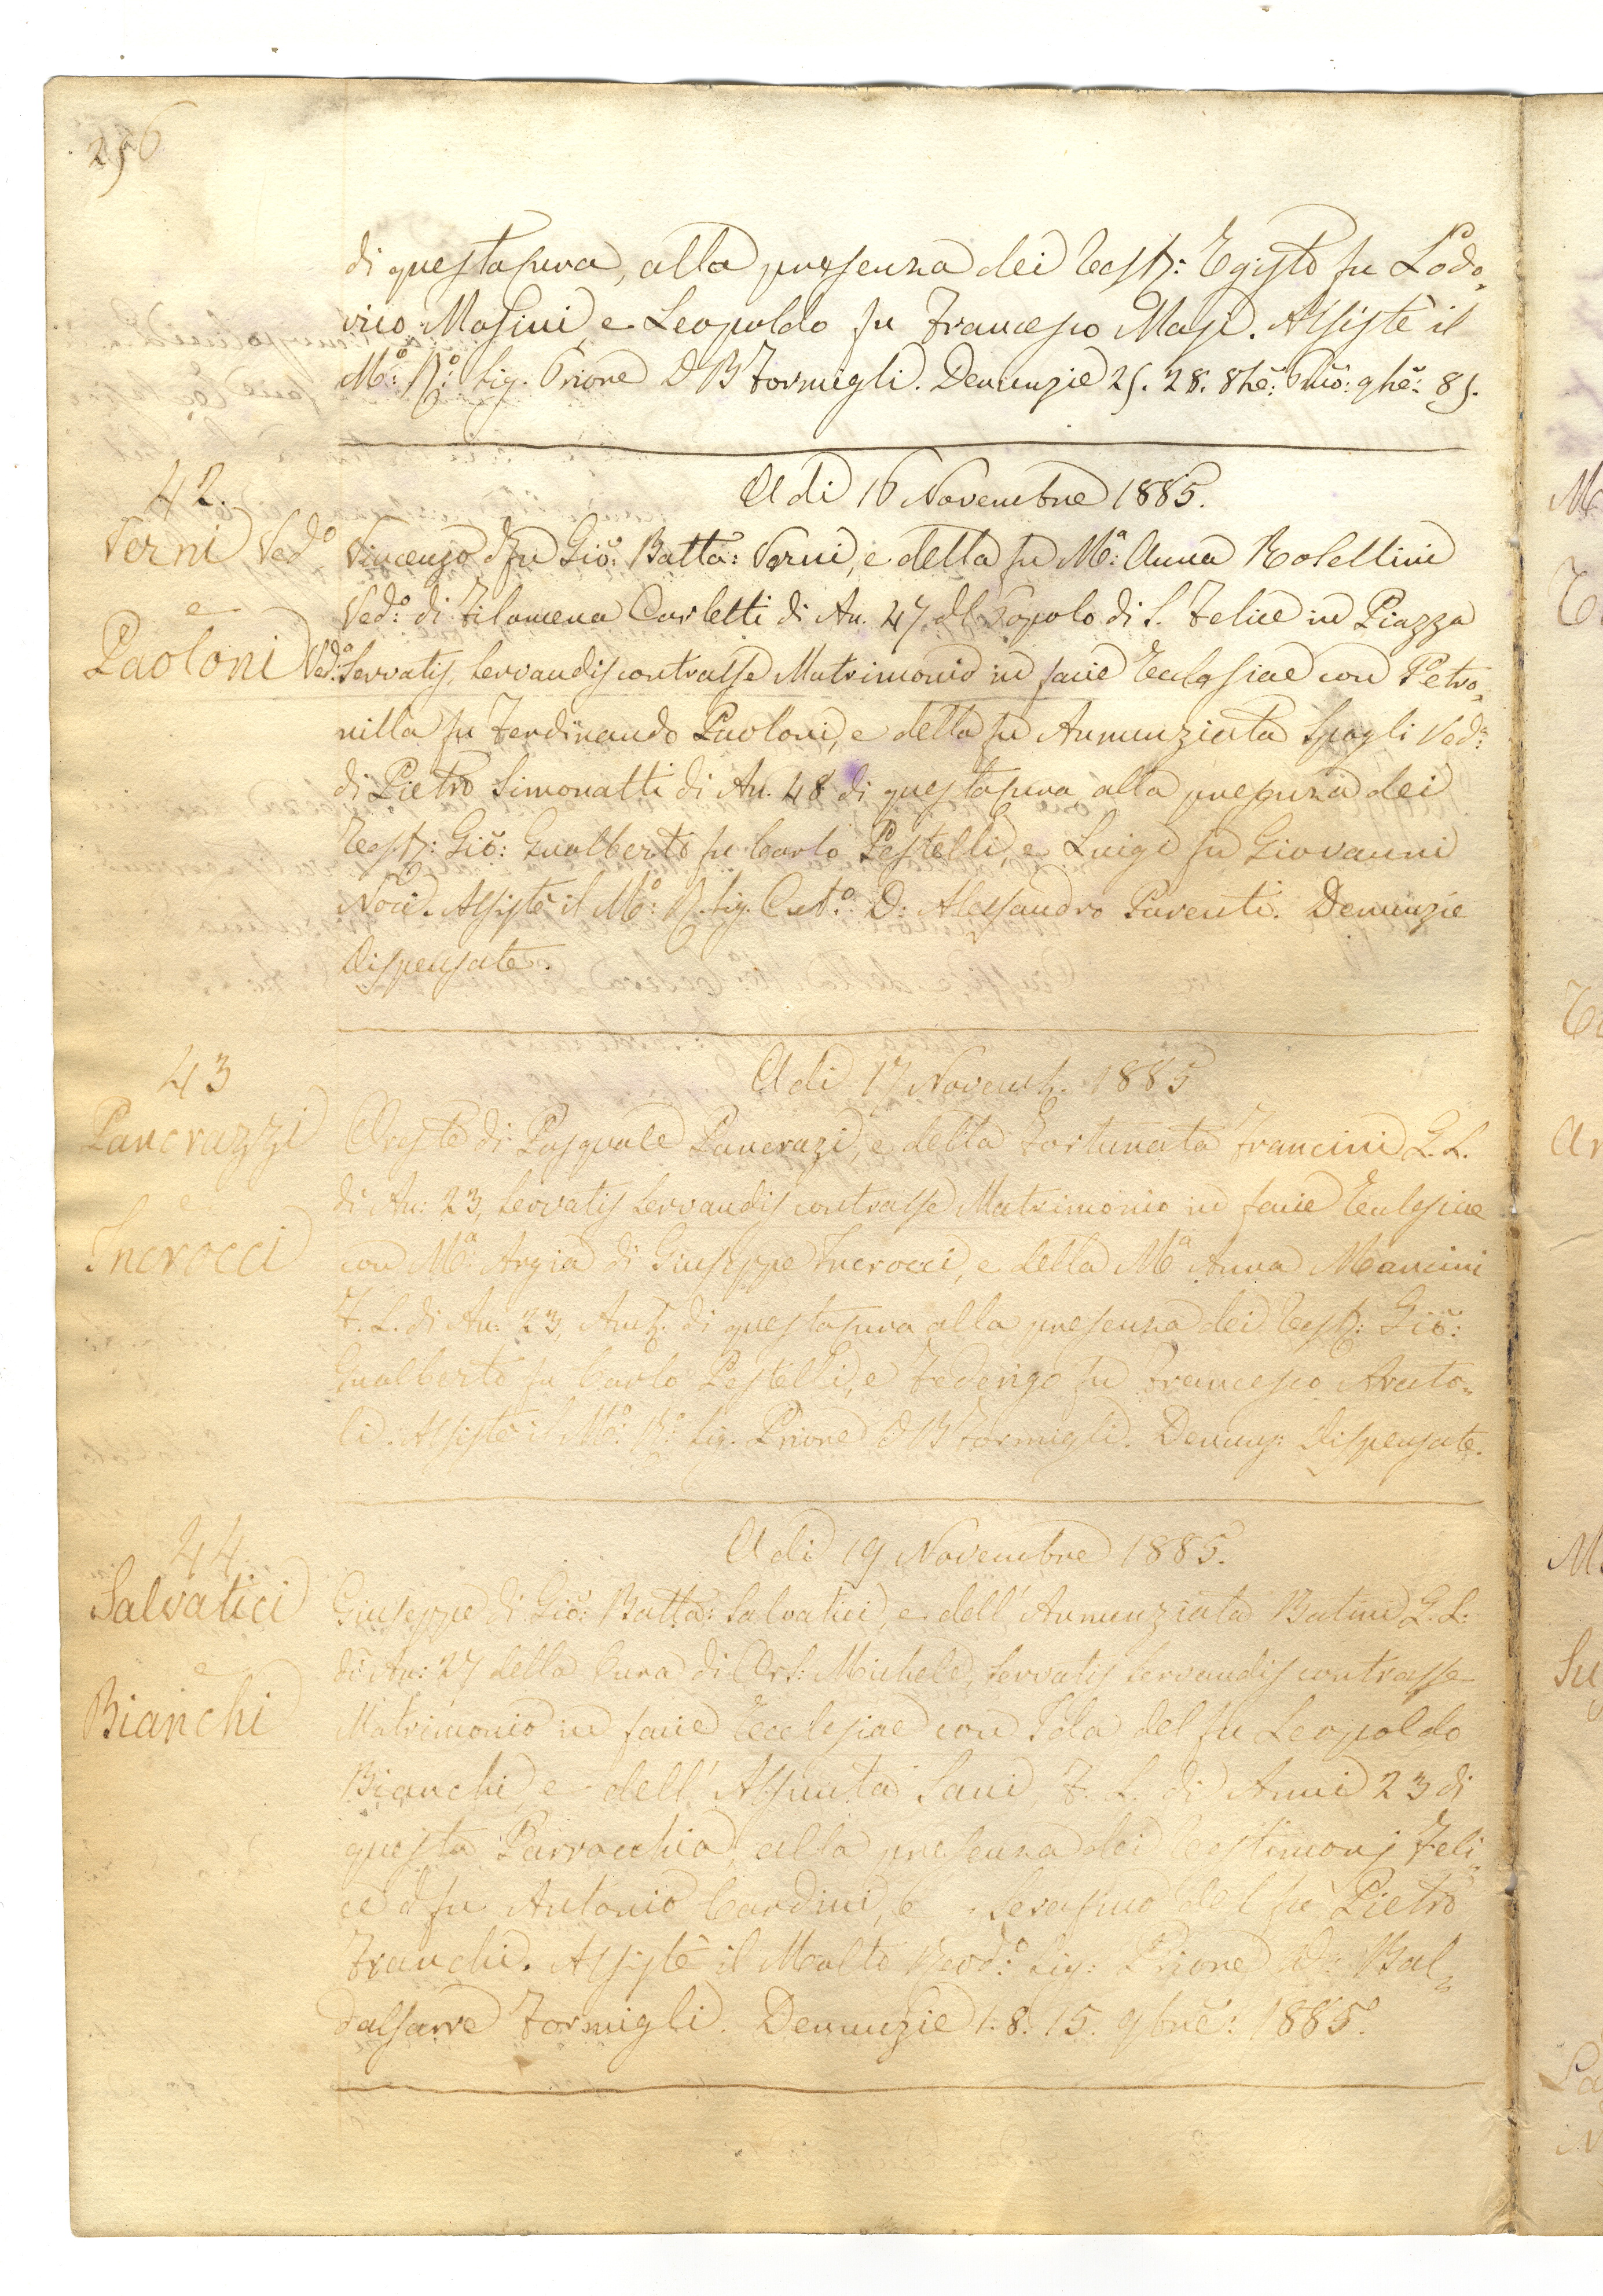 256
di questa cura, alla presenza dei Testj: Egisto fu Lodo„
vico Masini, e Leopoldo fu Francesco Masi. Assistè il
M.o: R.o: Sig. Priore D B Formigli. Denunzie 25. 28. 8bre: Pmo: 9bre: 85.
42.
Verni Ved.o
e
Paoloni Ved.a
A di 16 Novembre 1885.
Vincenzo d fu Gio: Batta: Verni, e della fu M.a: Anna Rosellini
Ved.o: di Filomena Carletti di An. 47 dl Popolo di S. Felice in Piazza
Servatis, Servandis contrasse Matrimonio in facie Ecclesiae con Petro„
nilla fu Ferdinando Paoloni, e della fu Annunziata Spogli Ved.a:
di Pietro Simonatti di An. 48 di questa cura alla presenza dei
Testj: Gio: Gualberto fu Carlo Pestelli, e Luigi fu Giovanni
Noci. Assistè il M.o: R. Sig. Cut.o: D: Alessandro Parenti. Denunzie
dispensate.
43
Pancrazzi
e
Incrocci
A di 17 Novemb. 1885
Oreste di Pasquale Pancrazi, e della Fortunata Francini G. L.
di An: 23, Servatis Servandis contrasse Matrimonio in facie Ecclesiae
con M.a: Argia di Giuseppe Incrocci, e della M.a Anna Mancini
F. L. di An: 23, Amb. di questa cura alla presenza dei Testj: Gio:
Gualberto fu Carlo Pestelli, e Federigo fu Francesco Arato„
li. Assistè il M.o: R.o: Sig. Priore D B Formigli. Denunz: dispensate.
44.
Salvatici
e
Bianchi
A di 19 Novembre 1885.
Giuseppe di Gio: Batta: Salvatici, e dell' Annunziata Batini G. L:
di An: 27 della Cura di Ors: Michele, Servatis Servandis contrasse
Matrimonio in facie Ecclesiae con Iola del fu Leopoldo
Bianchi, e dell' Assunta Sani, F. L. di Anni 23 di
questa Parrocchia, alla presenza dei testimonj Feli„
ce d fu Antonio Cardini, e Serafino del fu Pietro
Franchi. Assistè il Molto Revd.o: Sig: Priore D: Bal„
dassarre Formigli. Denunzie 1. 8. 15. 9bre: 1885.